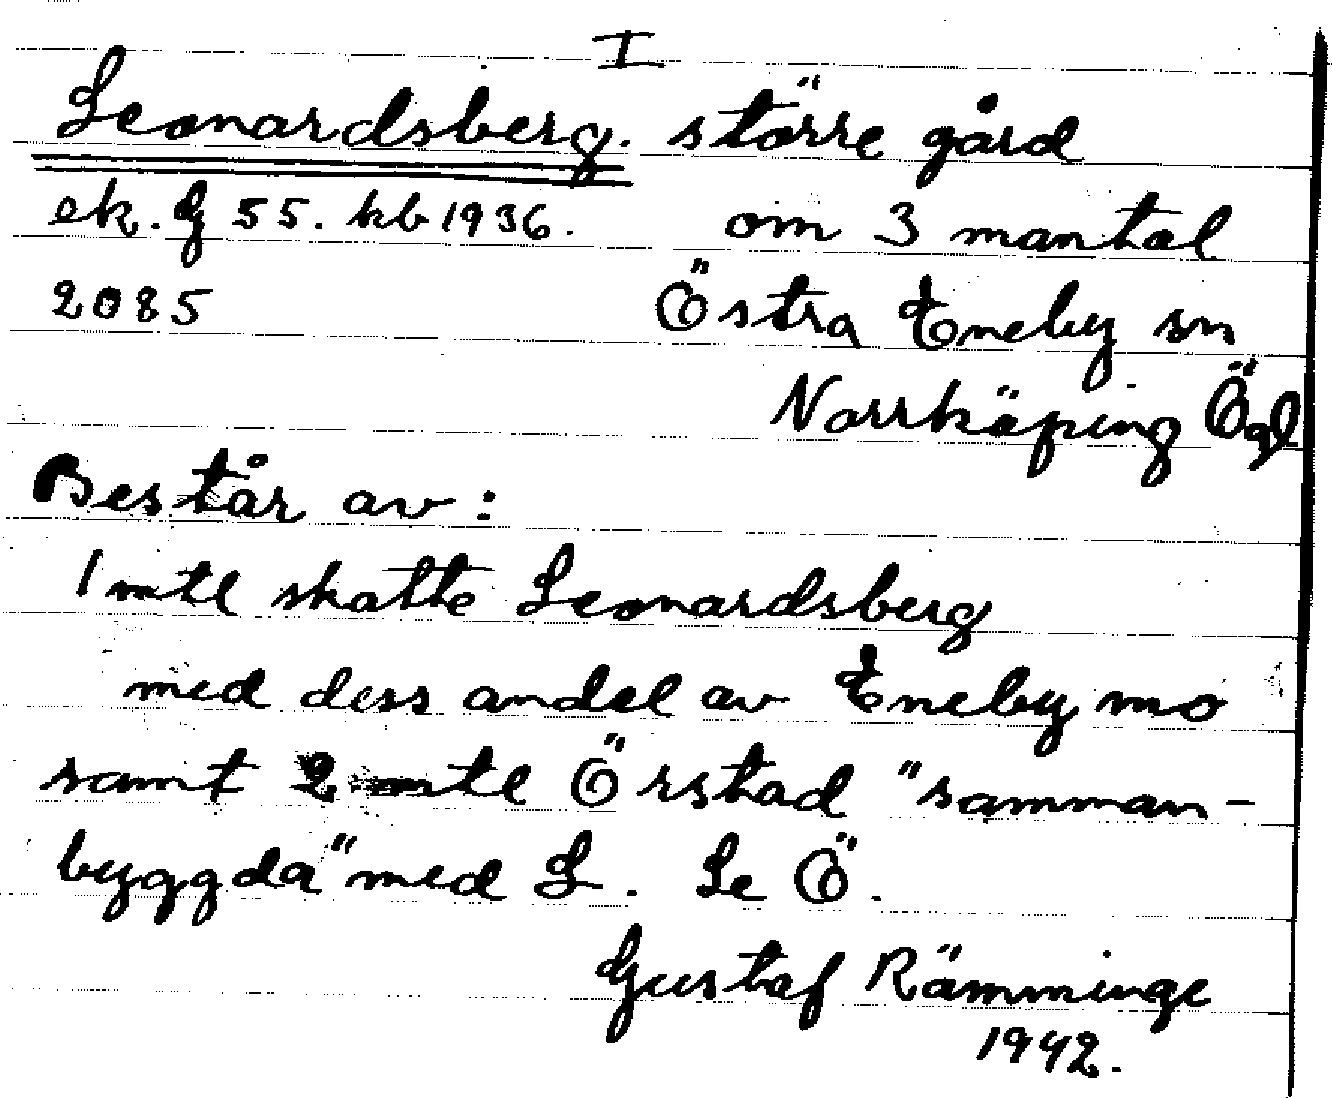 I
Leonardsberg. större gård
ek. G 55. kb 1936. om 3 mantal
2085 Östra Eneby sn
Norrköping Ögl
Består av:
1 mtl skatte Leonardsberg
med dess andel av Eneby mo
samt 2 mtl Örstad "samman-
byggda" med L. Se Ö.
Gustaf Rämminge
1942.